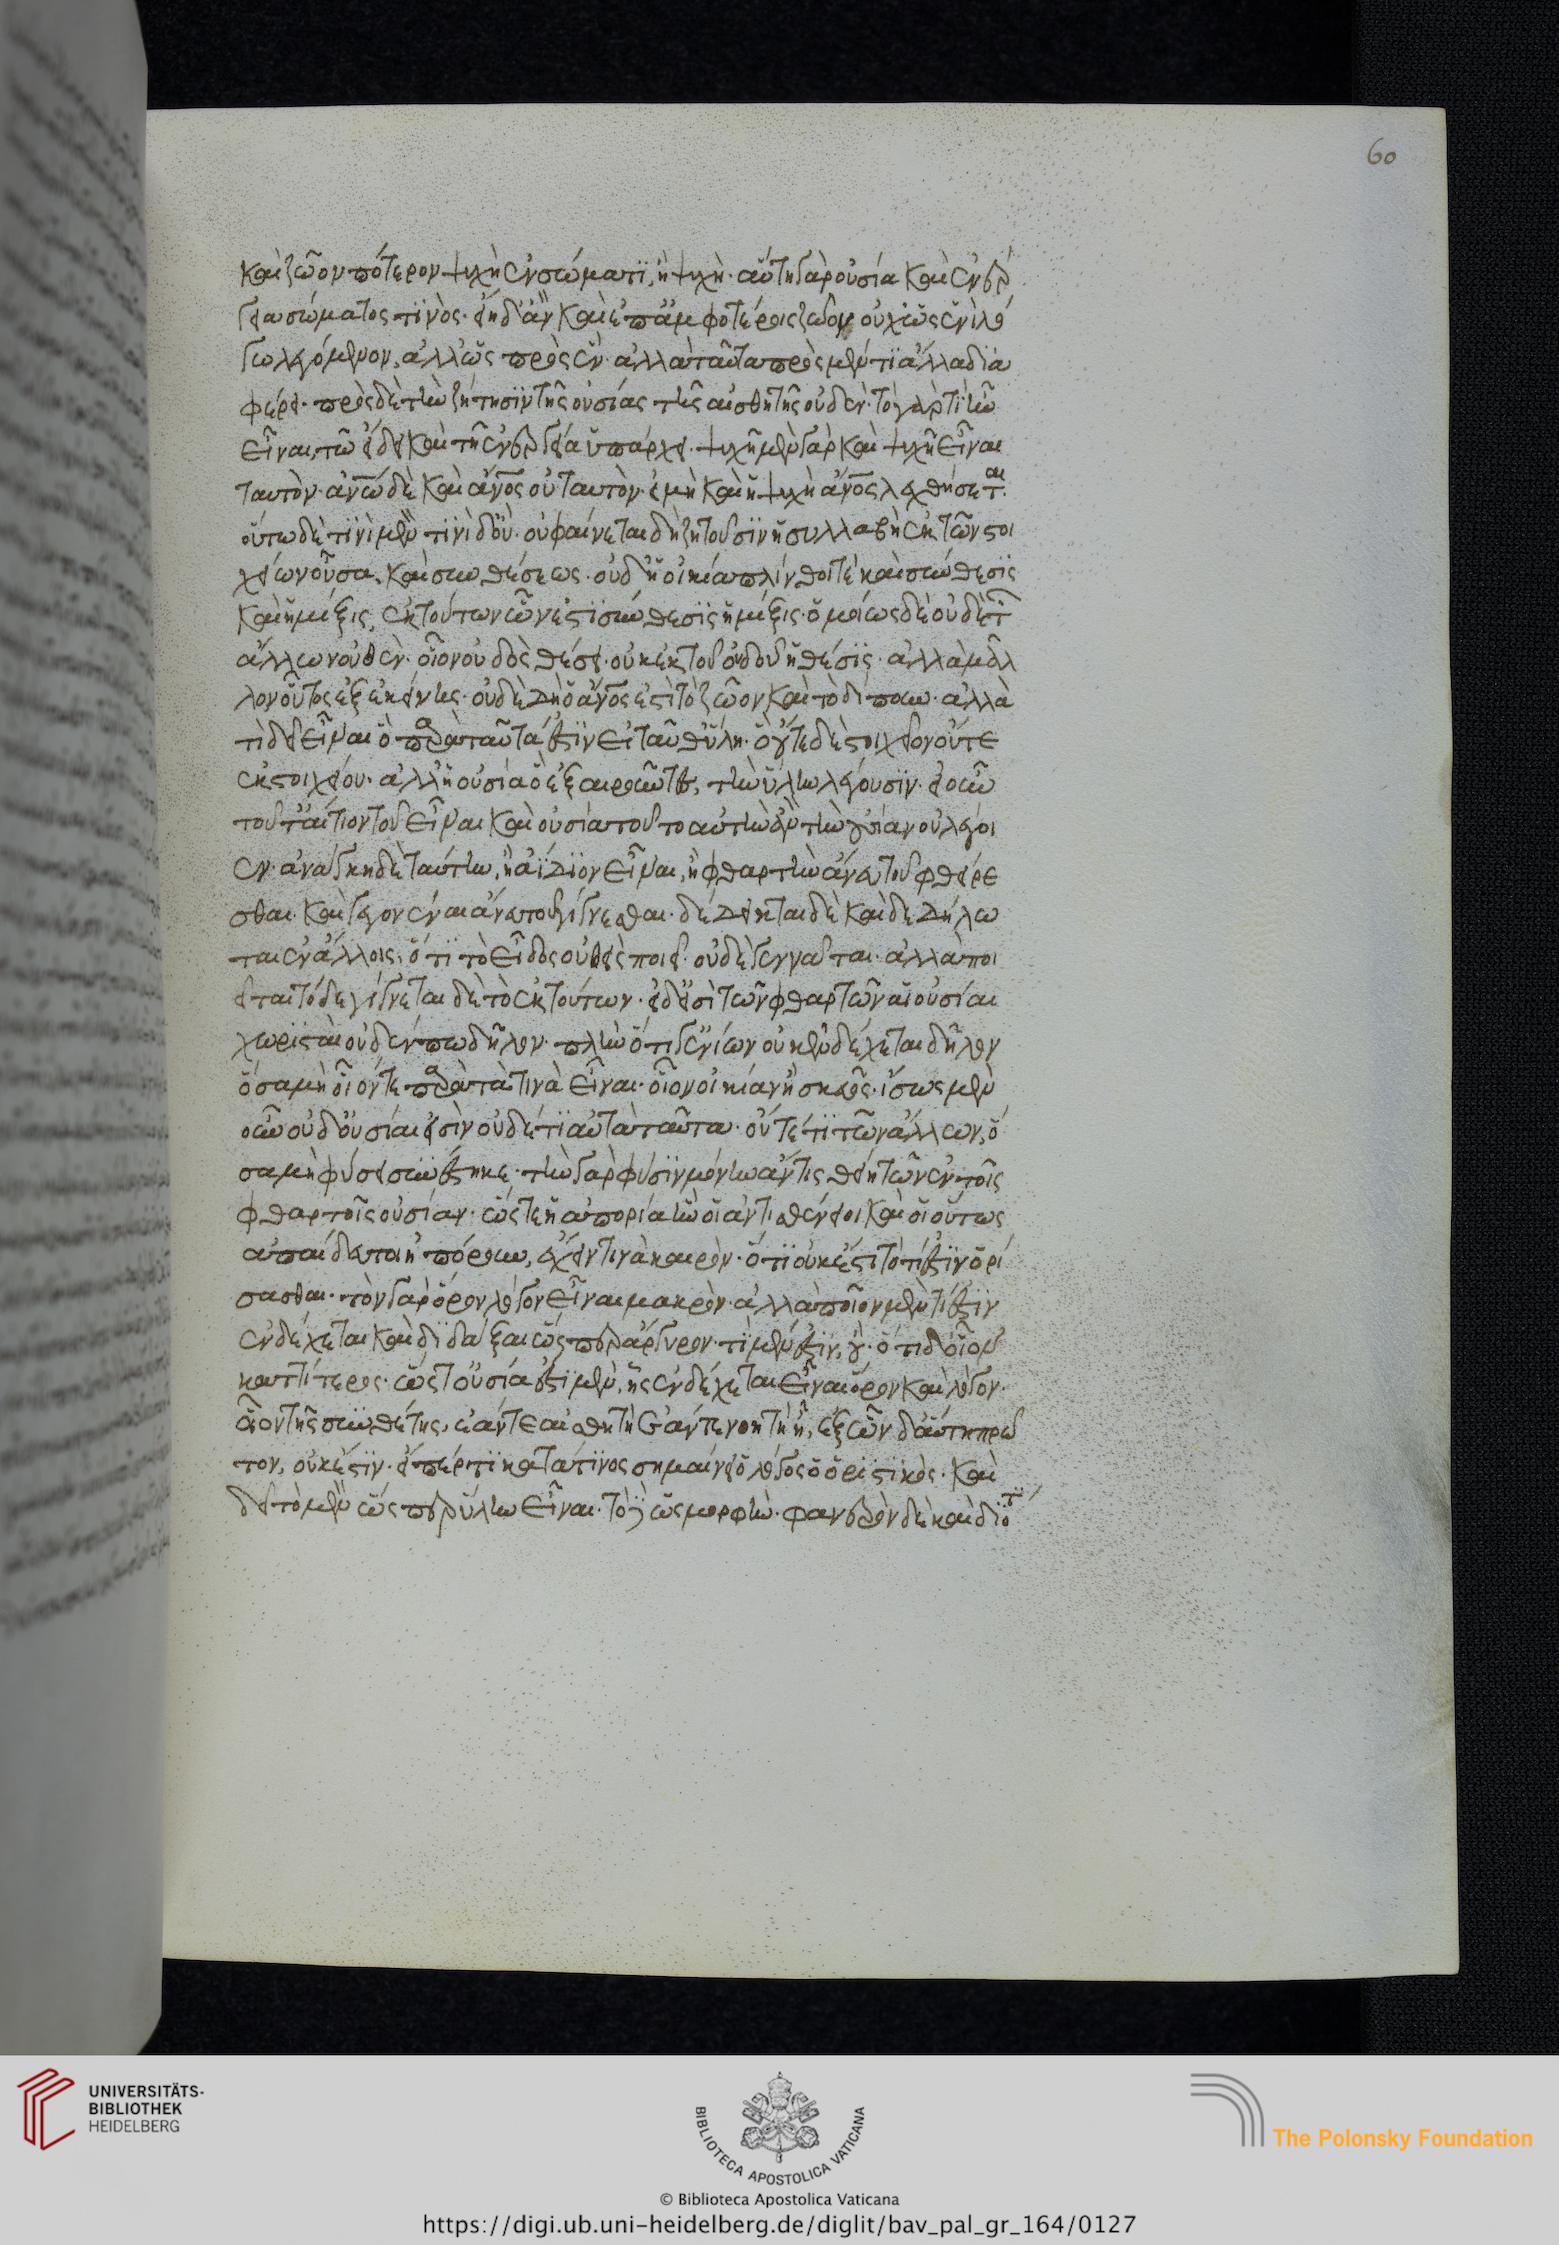 60
καὶ ζῶον πότερον ψυχὴ ἐν σώματι, ἢ ψυχή· αὕτη γὰρ οὐσία καὶ ἐνέρ
γεια σώματος τινός· εἴη δ' ἂν καὶ ἐπ' ἀμφοτέροις ζῶον οὐχ ὡς ἑνὶ λό
γω λεγόμενον, ἀλλ' ὡς πρὸς ἕν· ἀλλὰ ταῦτα πρὸς μέν τι ἄλλα δια
φέρει· πρὸς δὲ τὴν ζήτησιν τῆς οὐσίας τῆς αἰσθητῆς οὐδέν· τὸ γὰρ τί ἦν
εἶναι, τῶ εἴδει καὶ τῆ ἐνεργεία ὑπάρχει· ψυχῆ μὲν γὰρ καὶ ψυχὴ εἶναι
ταυτὸν· ἀνω δὲ καὶ ἄνος οὐ ταυτὸν· εἰ μὴ καὶ ἡ ψυχὴ ἄνος λεχθήσεται·
οὕτω δὲ τινὶ μὲν τινὶ δ' οὔ· οὐ φαίνεται δὴ ζητοῦσιν ἡ συλλαβὴ ἐκ τῶν στοι
χείων οὖσα, καὶ συνθέσεως· οὐδ' ἡ οἰκία πλίνθοι τὲ καὶ σύνθεσις
καὶ ἡ μίξις, ἐκ τούτων ὧν ἐστι σύνθεσις ἢ μίξις· ὁμοίως δὲ οὐδὲ τ
ἄλλων οὐθὲν· οἷον οὐδὸς θέσει· οὐκ ἐκ τοῦ οὐδοῦ ἡ θέσις· ἀλλὰ μᾶλ
λον οὗτος ἐξ ἐκείνης· οὐδὲ δὴ ὁ ἄνος ἐστὶ τὸ ζῶον καὶ τὸ δίπουν· ἀλλὰ
τὶ δεῖ εἶναι ὃ παρὰ ταῦτά ἐστιν εἰ ταῦθ' ὕλη· οὔτε δὲ στοιχεῖον οὔτε
ἐκ στοιχείου· ἀλλ' ἡ οὐσία ὃ ἐξαιροῦντες, τὴν ὕλην λέγουσιν· εἰ οὖν
τοῦτ' αἴτιον τοῦ εἶναι καὶ οὐσία τοῦτο αὐτὴν ἂν τὴν οὐσίαν οὐ λέγοι
εν· ἀνάγκη δὲ ταύτην, ἢ ἀΐδιον εἶναι, ἢ φθαρτὴν ἄνευ τοῦ φθείρε
σθαι· καὶ γεγονέναι ἄνευ τοῦ γίγνεσθαι· δέδεικται δὲ καὶ δεδήλω
ται ἐν ἄλλοις, ὅτι τὸ εἶδος οὐθεὶς ποιεῖ· οὐδὲ γεννᾶται· ἀλλὰ ποι
εῖται τόδε γίγνεται δὲ τὸ ἐκ τούτων· εἰ δ' εἰσὶ τῶν φθαρτῶν αἱ οὐσίαι
χωρισταὶ οὐδέν πω δῆλον· πλὴν ὅτι γ' ἐνίων οὐκ ἐνδέχεται δῆλον
ὅσα μὴ οἷόν τε παρὰ τὰ τινὰ εἶναι· οἷον οἰκίαν ἢ σκεῦος· ἴσως μὲν
οὖν οὐδ' οὐσίαι εἰσὶν οὐδέ τι αὐτὰ ταῦτα· οὔτέ τι τῶν ἄλλων, ὅ
σα μὴ φύσει συνέστηκε· τὴν γὰρ φύσιν μόνην ἄν τις θείη τῶν ἐν τοῖς
φθαρτοῖς οὐσίαν· ὥστε ἡ ἀπορία ἣν οἱ ἀντισθένειοι καὶ οἱ οὕτως
ἀπαίδευτοι ἠπόρουν, ἔχει τινὰ καιρόν· ὅτι οὐκ ἔστι τὸ τί ἐστιν ὁρί
σασθαι· τὸν γὰρ ὅρον λόγον εἶναι μακρόν· ἀλλὰ ποῖον μέν τί ἐστιν
ἐνδέχεται καὶ διδάξαι ὥσπερ ἄργυρον· τί μέν ἐστιν, οὔ· ὅτι δ' οἷον
καττίτερος· ὥστ' οὐσία ἔστι μὲν, ἧς ἐνδέχεται εἶναι ὅρον καὶ λόγον·
οἷον τῆς συνθέτης, ἐάν τε αἰσθητὴ ἐάν τε νοητὴ ἦ, ἐξ ὧν δ' αὕτη πρώ
των, οὐκ ἔστιν· εἴπέρ τι κατά τινος σημαίνει ὁ λόγος ὁ ὁριστικός· καὶ
δεῖ τὸ μὲν ὥσπερ ὕλην εἶναι· τὸ δὲ ὡς μορφήν· φανερὸν δὲ καὶ διότι
UNIVERSITÄTS-
BIBLIOTHEK
HEIDELBERG
BIBLIOTECA APOSTOLICA VATICANA
The Polonsky Foundation
© Biblioteca Apostolica Vaticana
https://digi.ub.uni-heidelberg.de/diglit/bav_pal_gr_164/0127